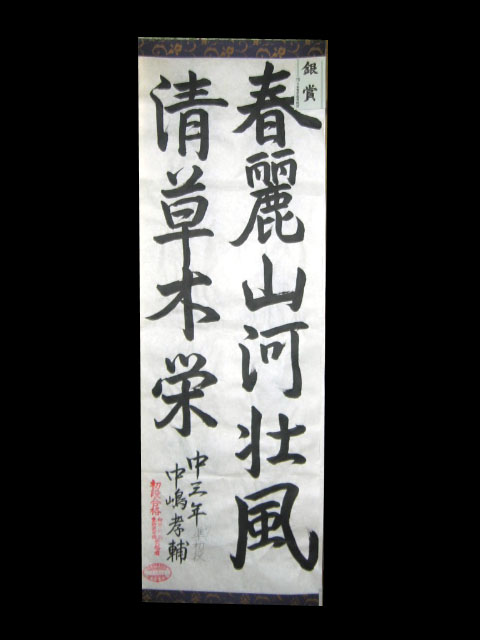 銀賞
春麗山河壮風
清草木栄
中三年
中嶋孝輔
初段合格